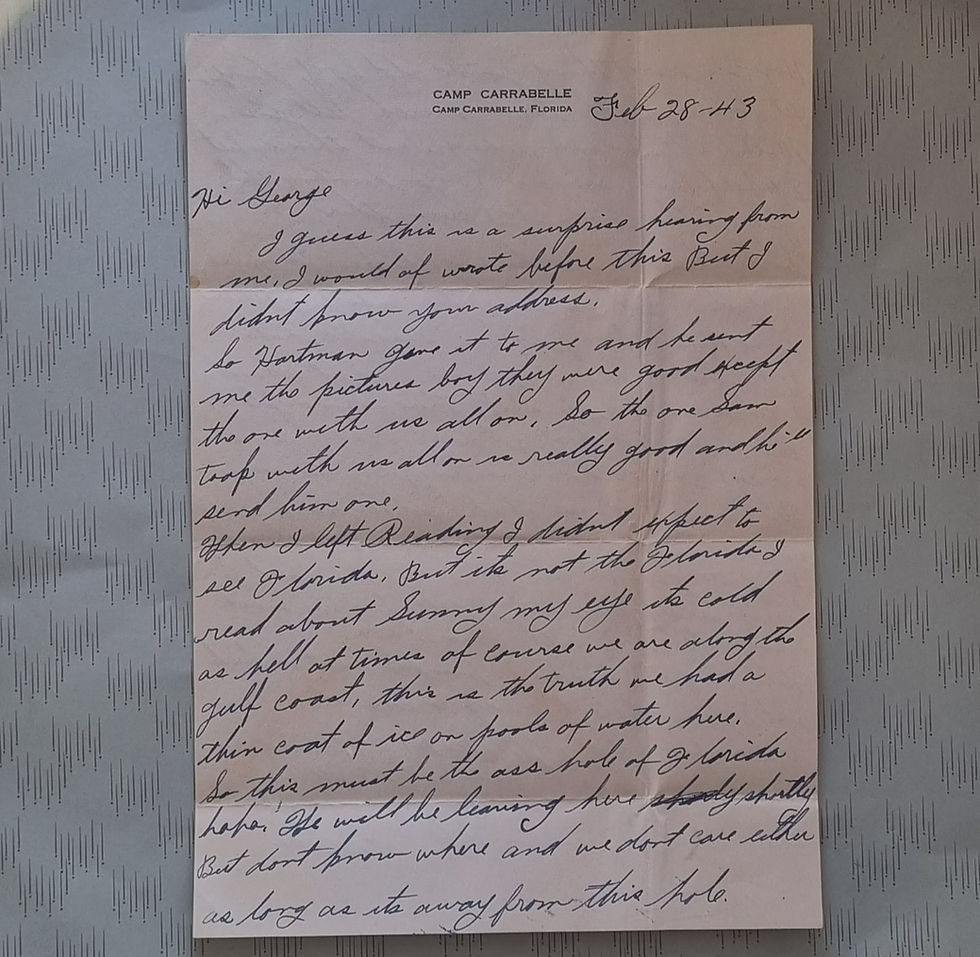 CAMP CARRABELLE
CAMP CARRABELLE, FLORIDA
Feb 28-43
Hi George
I guess this is a surprise hearing from
me, I would of wrote before this But I
didnt know your address.
So Hartman gave it to me and he sent
me the pictures boy they were good except
the one with us all on, So the one Sam
took with us all on is really good and he'll
send him one.
When I left Reading I didnt expect to
see Florida, But its not the Florida I
read about Sunny my eye its cold
as hell at times of course we are along the
gulf coast, this is the truth we had a
thin coat of ice on pools of water here.
So this must be the ass hole of Florida
haha! We will be leaving here shortly
But dont know where and we dont care either
as long as its away from this hole.